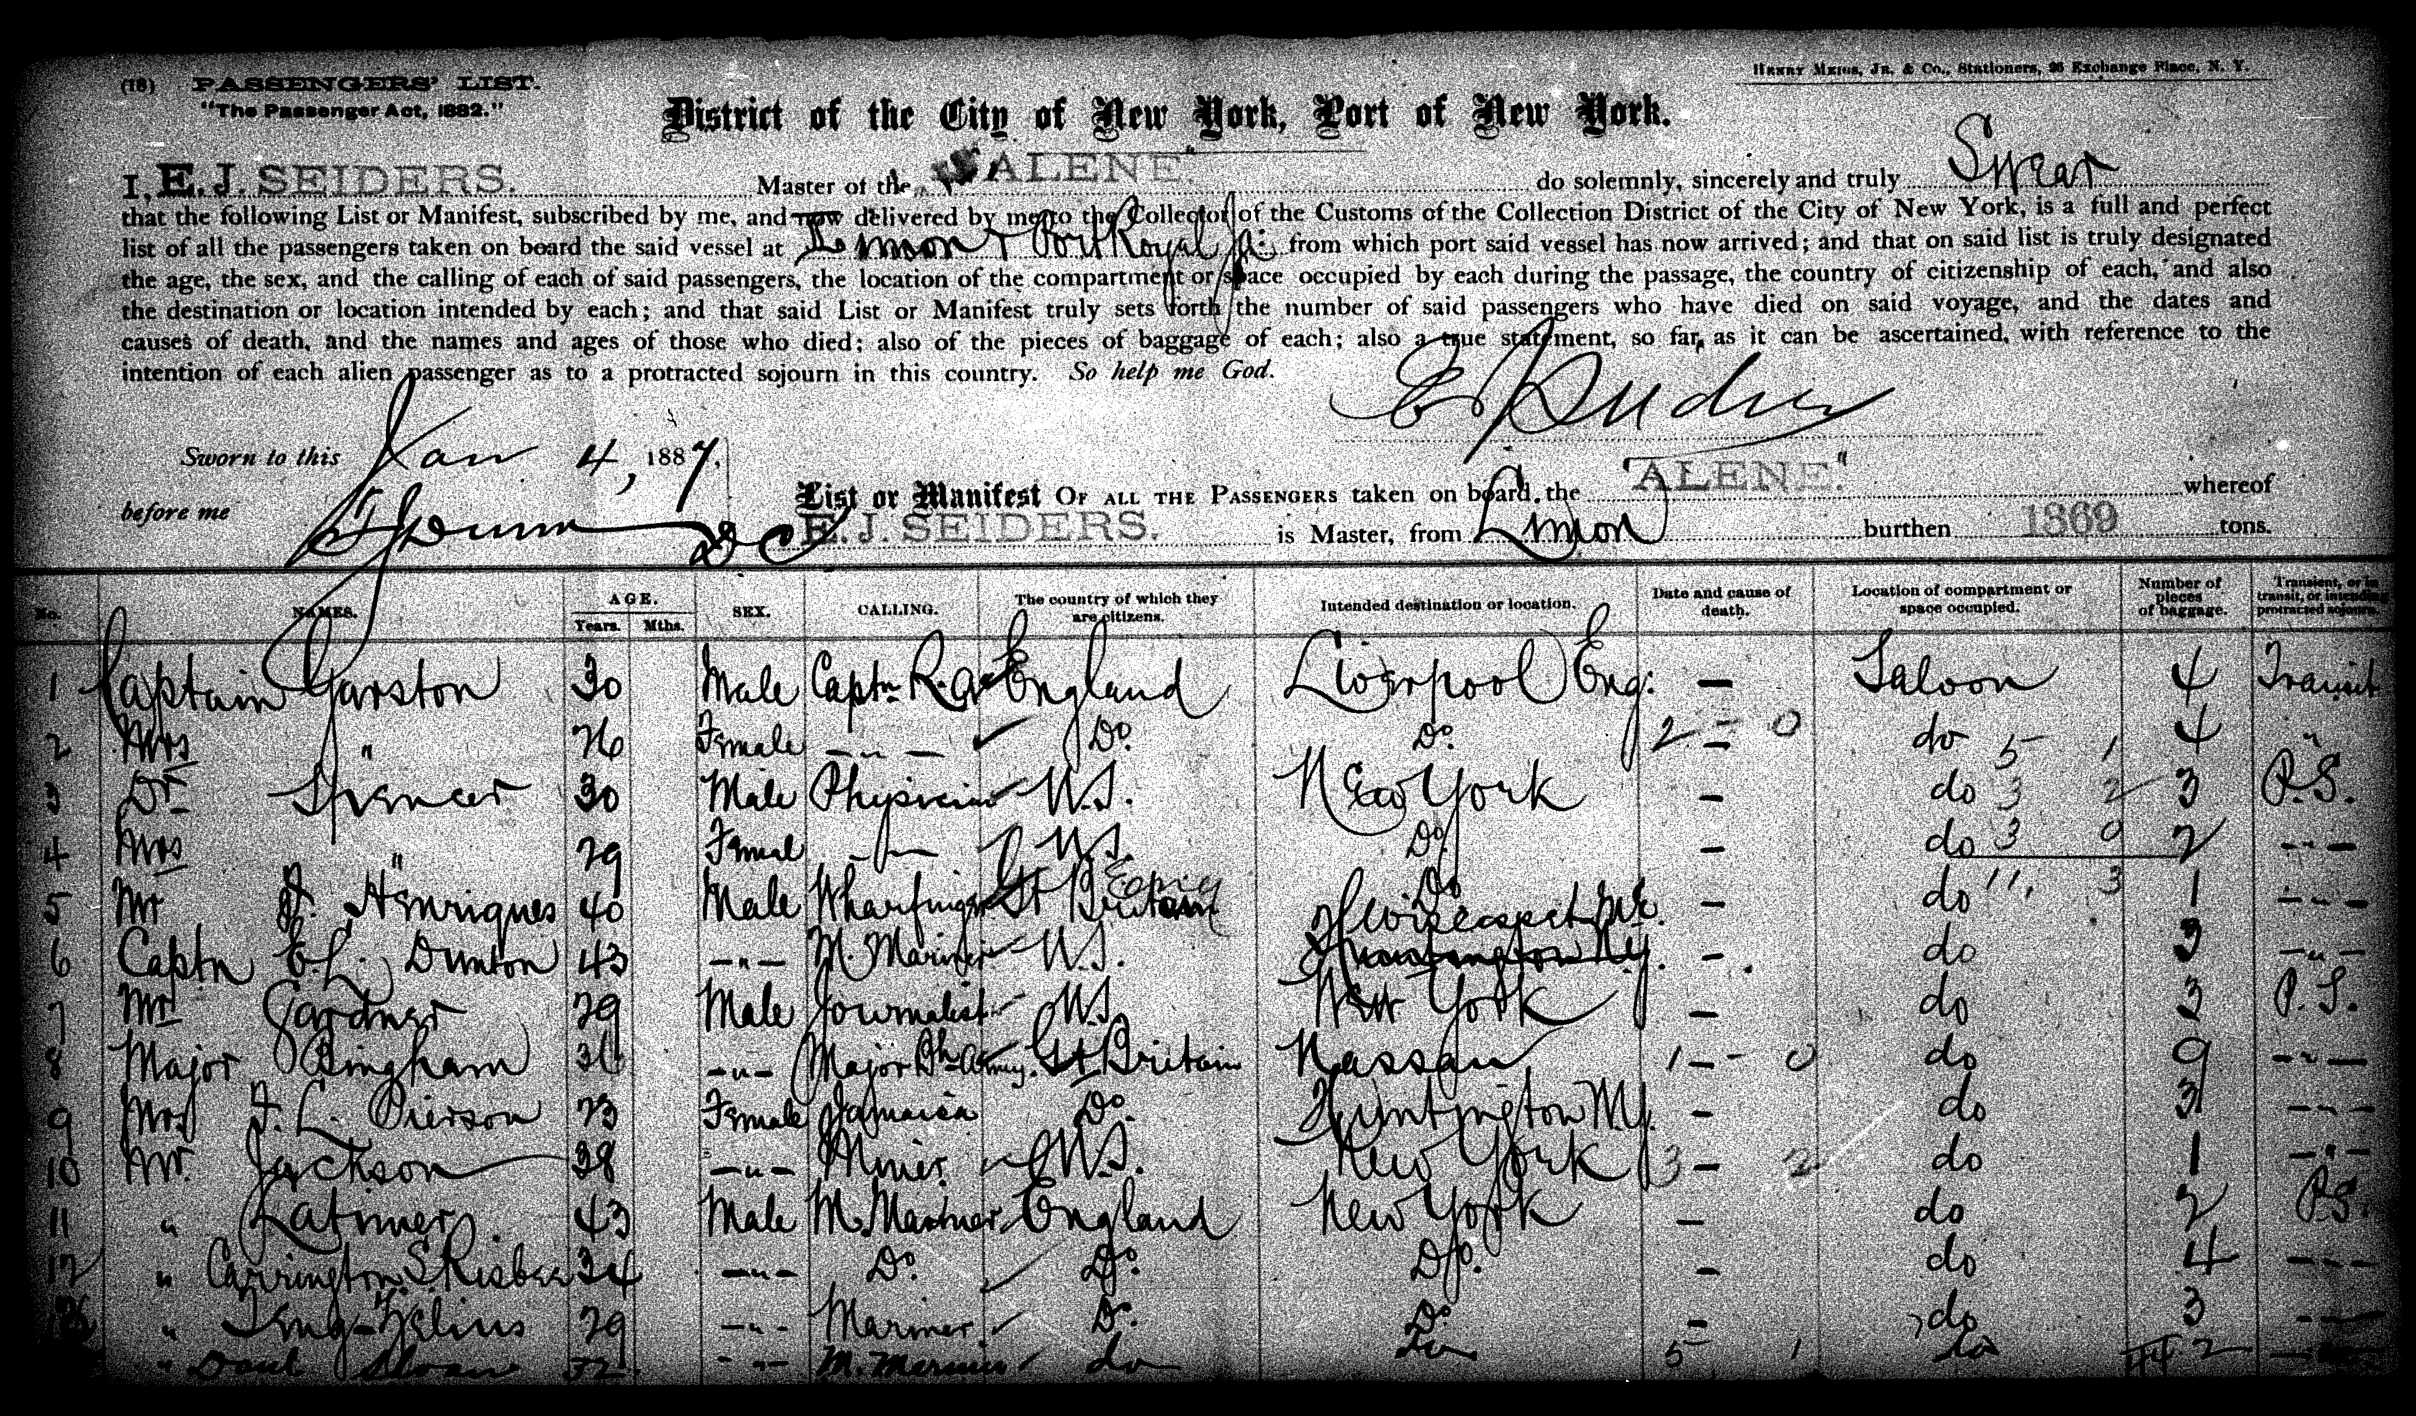 (18) PASSENGERS' LIST.
"The Passenger Act, 1882."
HENRY MEIGS, JR. & CO., Stationers, 26 Exchange Place, N. Y.
District of the City of New York, Port of New York.
I, E. J. SEIDERS. Master of the "ALENE" do solemnly, sincerely and truly Swear
that the following List or Manifest, subscribed by me, and now delivered by me to the Collector of the Customs of the Collection District of the City of New York, is a full and perfect
list of all the passengers taken on board the said vessel at Limon & Port Royal Ja: from which port said vessel has now arrived; and that on said list is truly designated
the age, the sex, and the calling of each of said passengers, the location of the compartment or space occupied by each during the passage, the country of citizenship of each, and also
the destination or location intended by each; and that said List or Manifest truly sets forth the number of said passengers who have died on said voyage, and the dates and
causes of death, and the names and ages of those who died; also of the pieces of baggage of each; also a true statement, so far, as it can be ascertained, with reference to the
intention of each alien passenger as to a protracted sojourn in this country. So help me God.
Sworn to this Jan 4, 1887,
before me
List or Manifest OF ALL THE PASSENGERS taken on board, the "ALENE." whereof
E. J. SEIDERS. is Master, from Limon burthen 1369 tons.
No. NAMES. AGE. Years. Mths. SEX. CALLING. The country of which they are citizens. Intended destination or location. Date and cause of death. Location of compartment or space occupied. Number of pieces of baggage. Transient, or in transit, or intending protracted sojourn.
1 Captain Garston 30 Male Captn R.A. England Liverpool Eng: — Saloon 4 Transit
2 Mrs " 26 Female — " — Do. Do. 2 - 0 do 5 1 4 "
3 Dr Spencer 30 Male Physician U.S. New York — do 3 2 3 P.S.
4 Mrs " 29 Femal — " — U.S. Do. — do 3 0 2 - " -
5 Mr Henriques 40 Male Wharfinger Gt Britain Do — do 11, 3 1 - " -
6 Captn E. L. Dunton 43 - " - M. Mariner U.S. of Wiscasset Me. Huntington N.Y. — do 3 - " -
7 Mr Gardner 29 Male Journalist U.S. New York — do 2 P.S.
8 Major Bingham 36 - " - Major Bh Army. Gt Britain Nassau 1 - 0 do 9 - " -
9 Mrs F. L. Pierson 23 Female Jamaica Do. Huntington N.Y. — do 3 - " -
10 Mr. Jackson 38 - " - Miner U.S. New York 3 - 2 do 1 - " -
11 " Latimer. 43 Male M. Mariner England New York — do 2 P.S.
12 " Carrington 34 - " - Do. Do. Do. — do 4 - " -
" 29 - " - Mariner Do. Do. — do 3 - " -
" Sloan 32 - " - M. Mariner do do 5 1 do 2 - " -